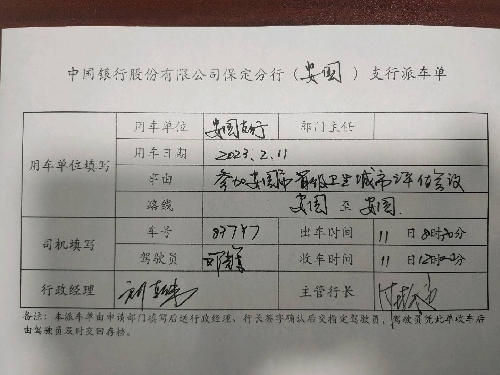 中国银行股份有限公司保定分行（安国）支行派车单
用车单位填写
用车单位 安国支行 部门主任
用车日期 2023.2.11
事由 参加安国市省级卫生城市评估会议
路线 安国 至 安国
司机填写
车号 83747 出车时间 11 日 8时30分
驾驶员 收车时间 11 日12时00分
行政经理 主管行长
备注：本派车单由申请部门填写后送行政经理、行长签字确认后交指定驾驶员，驾驶员凭此单收车后
由驾驶员及时交回存档。